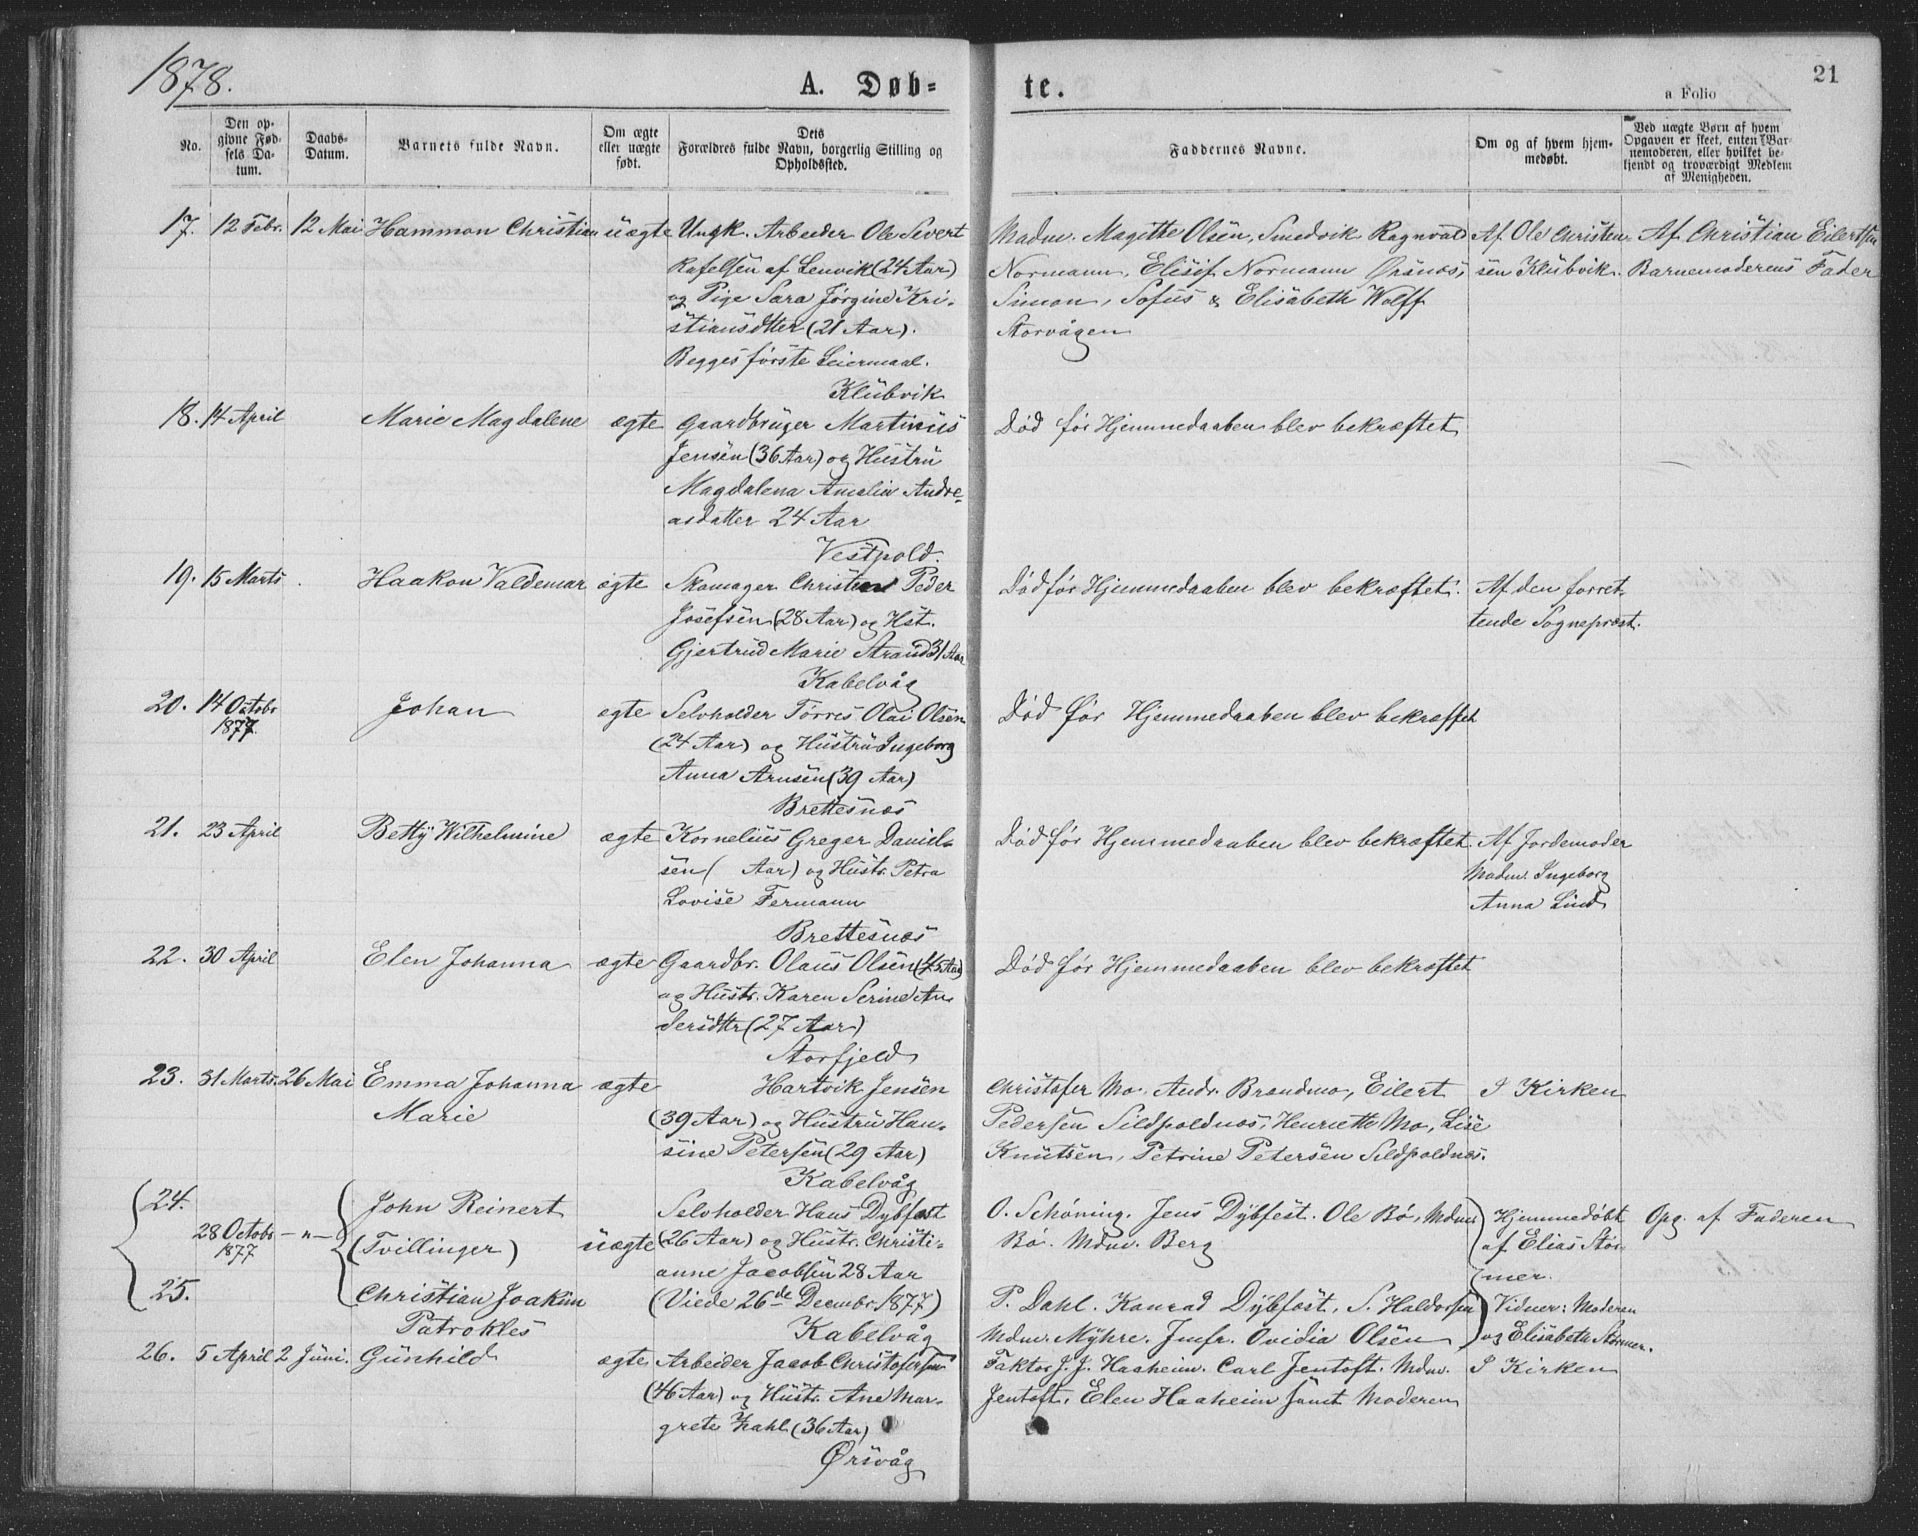 1878.
A. Døb-
te.
a. Folio
21
No.
Den op-
givne Fød-
sels Da-
tum.
Daabs-
Datum.
Barnets fulde Navn.
Om ægte
eller uægte
født.
Dets
Forældres fulde Navn, borgerlig Stilling og
Opholdssted.
Faddernes Navne.
Om og af hvem hjem-
medøbt.
Ved uægte Børn af hvem
Opgaven er skeet, enten Bar-
nemoderen, eller hvilket be-
kjendt og troværdigt Medlem
af Menigheden.
17. 12 Febr. 12 Mai Hammon Christian uægte Ungk. Arbeider Ole Sivert
Rafelsen af Lenvik (24 Aar)
og Pige Sara Jørgine Kri-
stiansdtter (21 Aar).
Begges første Leiermaal.
Klubvik
Madm. Magitte Olsen, Smedvik Ragnvald
Normann, Elisif Normann Ørsnæs,
Simon, Sofus & Elisabeth Wolff
Storvågen
Af Ole Christen-
sen Klubvik.
Af Christian Eilertsen
Barnemoderens Fader
18. 14 April Marie Magdalene ægte Gaardbruger Martinus
Jensen (36 Aar) og Hustru
Magdalena Amalia Andre-
asdatter 24 Aar
Vestpold.
Død før Hjemmedaaben blev bekræftet
19. 15 Marts Haakon Valdemar ægte Skomager Christen Peder
Josefsen (28 Aar) og Hst.
Gjertrud Marie Strand 31 Aar
Kabelvåg
Død før Hjemmedaaben blev bekræftet.
Af den forret-
tende Sognepræst.
20. 14 Octobr
1877.
Johan ægte Selvholder Tørres Olai Olsen
(24 Aar) og Hustru Ingeborg
Anna Arnsen (39 Aar)
Brettesnæs
Død før Hjemmedaaben blev bekræftet
21. 23 April Betty Wilhelmine ægte Kornelius Greger Daniel-
sen ( Aar) og Hustr. Petra
Lovise Fermann
Brettesnæs
Død før Hjemmedaaben blev bekræftet.
Af Jordemoder
Madm. Ingeborg
Anna Lind
22. 30 April Elen Johanna ægte Gaardbr. Olaus Olsen (45 Aar)
og Hustr. Karen Serine An-
dersdttr (27 Aar)
Storfjeld
Død før Hjemmedaaben blev bekræftet
23. 31 Marts. 26 Mai Emma Johanna
Marie
ægte Hartvik Jensen
(39 Aar) og Hustru Han-
sine Petersen (29 Aar)
Kabelvåg
Christofer Mo. Andr. Brandmo, Eilert
Pedersen Sildpoldnæs, Henriette Mo, Lise
Knutsen, Petrine Petersen Sildpoldnæs.
I Kirken
24. John Reinert
28 Octobr
1877
-"-
(Tvillinger)
25. Christian Joakim
Patrokles
uægte
Selvholder Hans Dybfest
(26 Aar) og Hustr. Christi-
anne Jacobsen 28 Aar
(Viede 26de Decembr. 1877)
Kabelvåg
O. Schøning. Jens Dybfest. Ole Bø, Mdm.
Bø. Mdm. Berg
P. Dahl. Konrad Dybfest. S. Haldorsen
Mdm. Myhre. Jmfr. Ovidia Olsen
Hjemmedøbt
af Elias Stor-
mer.
Vidner: Moderen
og Elisabeth Stormer.
Opg. af Faderen
26. 5 April 2 Juni. Gunhild ægte Arbeider Jacob Christofersen
(46 Aar) og Hustr. Ane Mar-
grete Zahl (36 Aar)
Ørsvåg
Faktor J. J. Haaheim. Carl Jentoft. Mdm.
Jentoft. Elen Haaheim samt Moderen
I Kirken